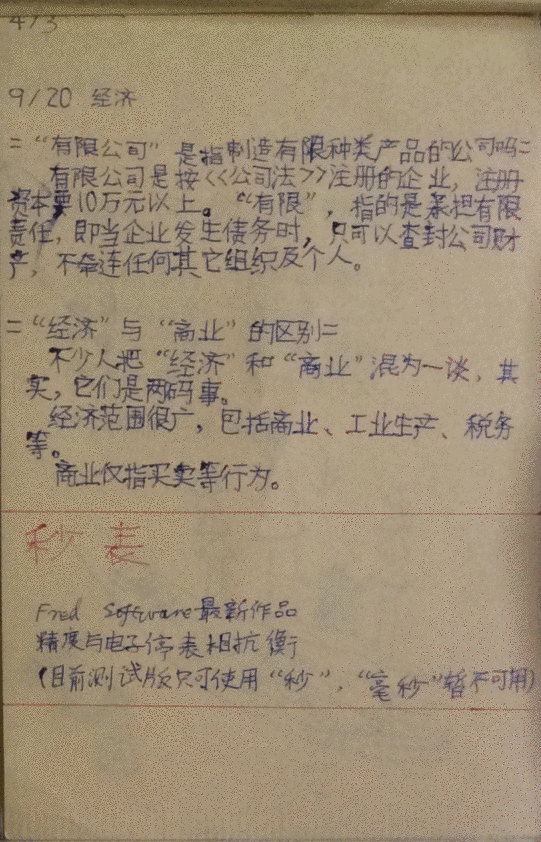 4/3
9/20 经济
="有限公司"是指制造有限种类产品的公司吗=
有限公司是按<<公司法>>注册的企业，注册
资本要10万元以上。"有限"，指的是承担有限
责任，即当企业发生债务时，只可以查封公司财
产，不牵连任何其它组织及个人。
="经济"与"商业"的区别=
不少人把"经济"和"商业"混为一谈，其
实，它们是两码事。
经济范围很广，包括商业、工业生产、税务
等。
商业仅指买卖等行为。
秒表
Fred Software最新作品
精度与电子停表相抗衡
(目前测试版只可使用"秒"，"毫秒"暂不可用)